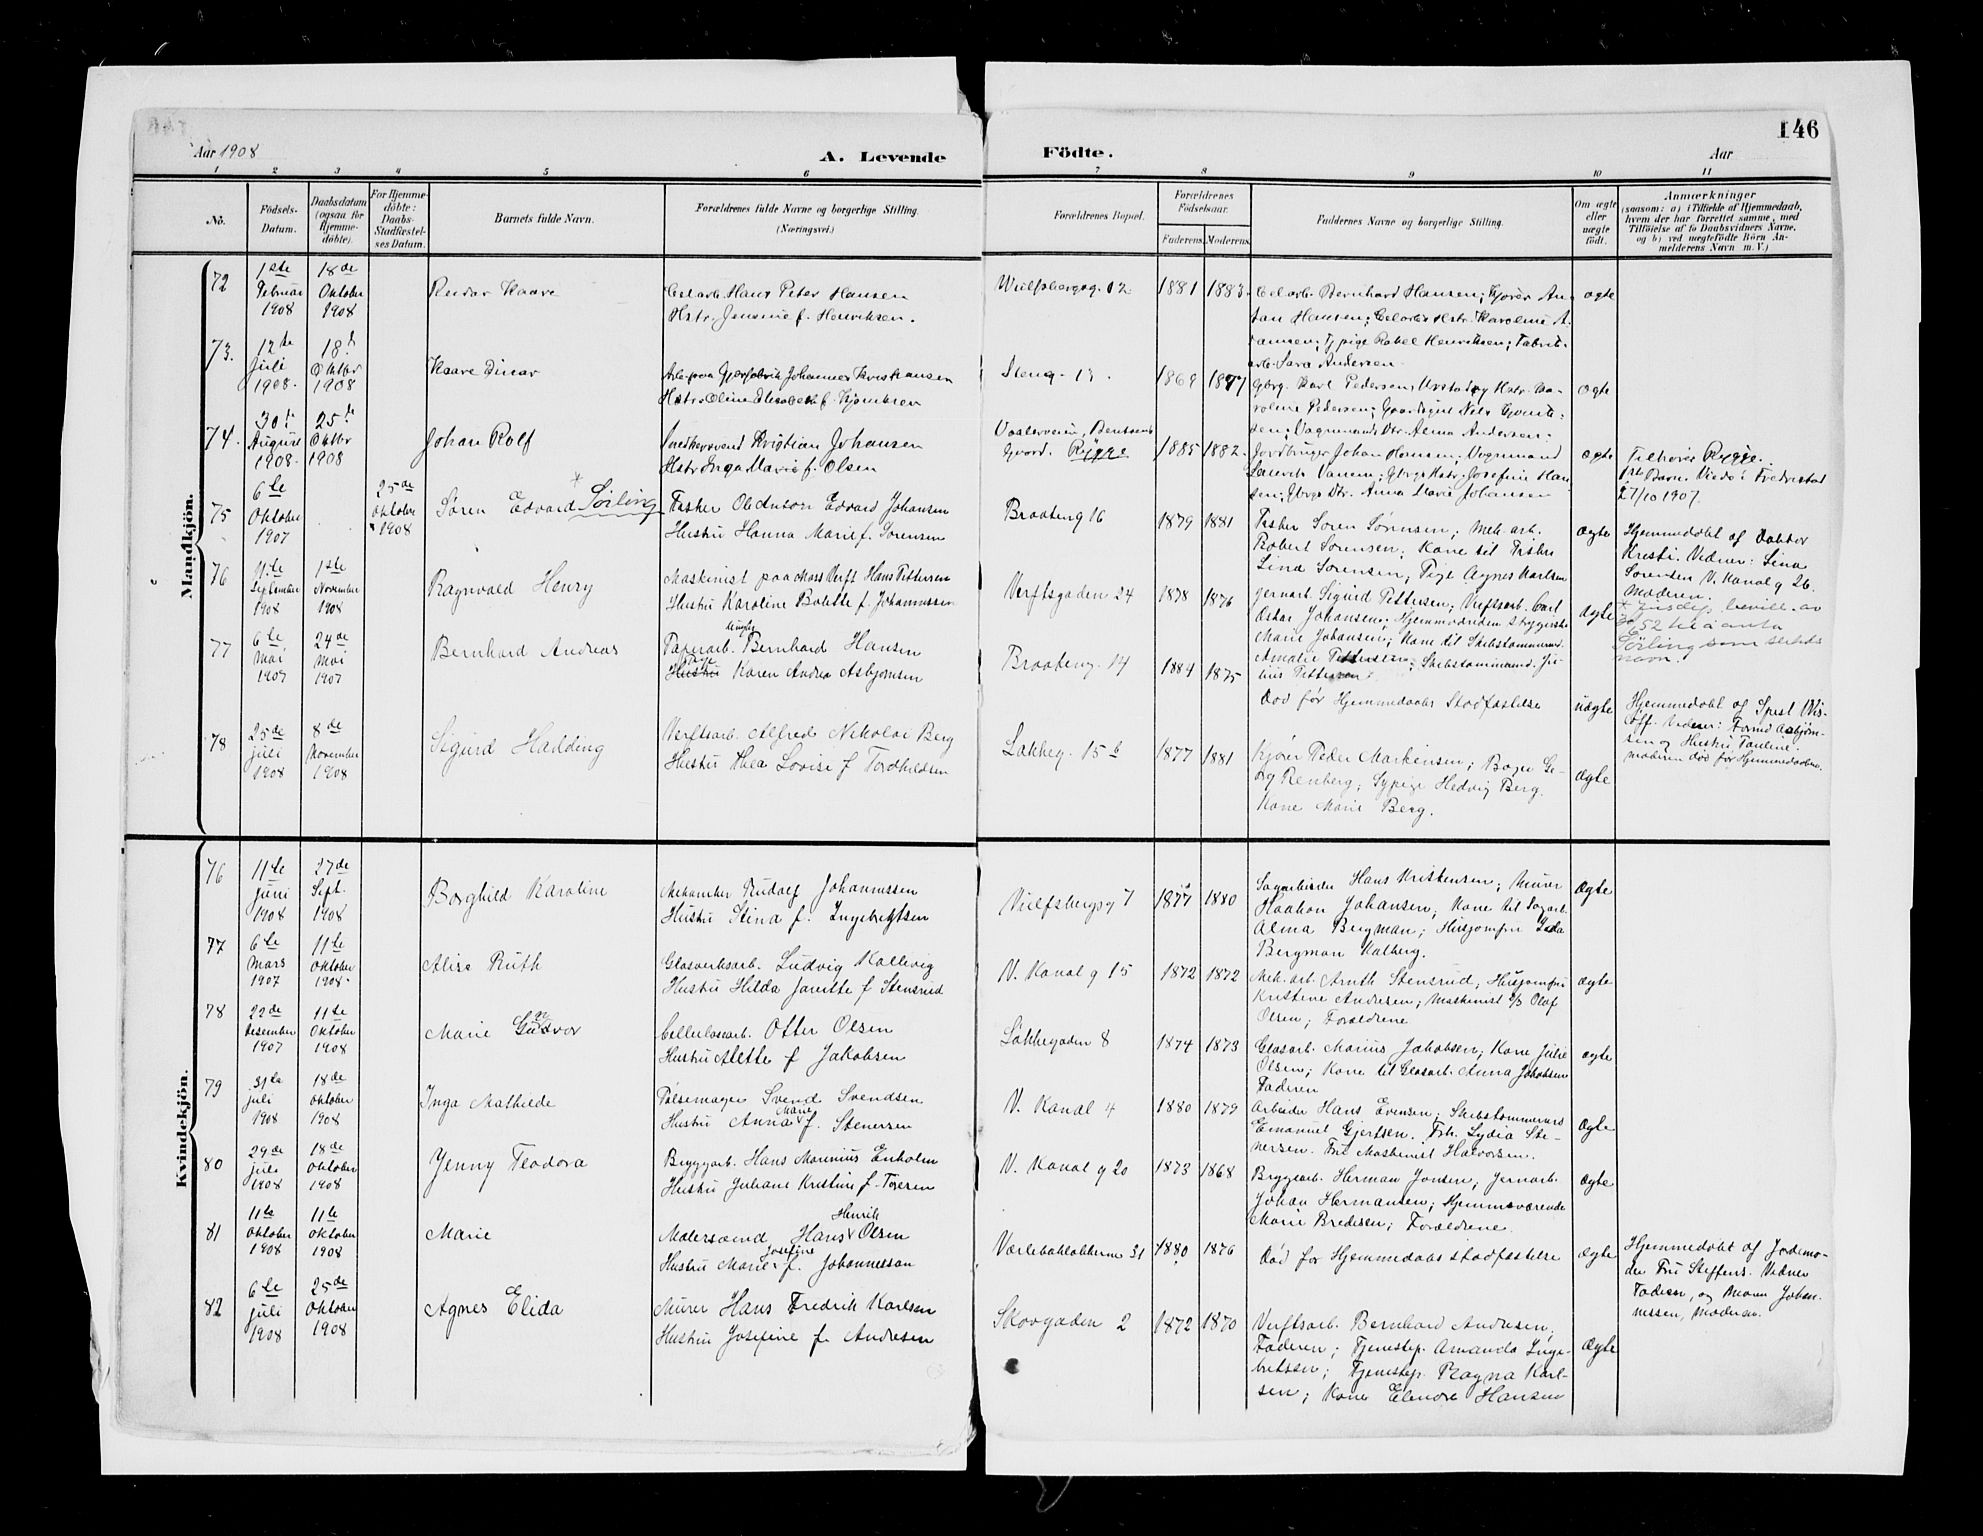 146
Aar 1908
A. Levende
Födte.
Aar
1 2 3 4 5 6 7 8 9 10 11
No.
Födsels-
Datum.
Daabsdatum
(ogsaa för
Hjemme-
döbte).
For Hjemme-
döbte:
Daabs-
Stadfæstel-
ses Datum.
Barnets fulde Navn.
Forældrenes fulde Navne og borgerlige Stilling.
(Næringsvei.)
Forældrenes Bopæl.
Forældrenes
Födselsaar.
Faderens. Moderens.
Faddernes Navne og borgerlige Stilling.
Om ægte
eller
uægte
födt.
Anmærkninger
(saasom: a) i Tilfælde af Hjemmedaab,
hvem der har forrettet samme, med
Tilföielse af to Daabsvidners Navne,
og b) ved uægtefödte Börn An-
melderens Navn m. V.)
Mandkjön.
72
1ste
Februar
1908
18de
Oktober
1908
Reidar Kaare
Celarb. Hans Peter Hansen
Hstr. Jensine f. Henriksen.
Wulfsbergsg. 12
1881 1883.
Celarb. Bernhard Hansen; Kjører An-
ton Hansen; Celarbs Hstr. Karoline A-
; Typige Rakel Henriksen; Fabrik-
arb. Sara Andersen.
ægte
73.
12te
Juli
1908.
18.
Oktbr
1908
Kaare Einar
Johannes Kristiansen
Hstr. Oline Elisabeth f.
1869 1877
Gbrg. Karl Pedersen, Hstr. Ka-
roline Pedersen; Nils
; Vognmands Dtr. Alma Andersen.
ægte
74.
30te
August
1908.
25te
Oktbr
1908
Johan Rolf
Snedkersvend Kristian Johansen
Hstr. Inga Marie f. Olsen
Vaalerveien, Berntsens
Gaard. Rygge
1885 1882.
Jordbruger Johan Hansen; Vognmand
Lauritz ; Gbrgs Hstr. Josefine Han-
sen; Gbrgs Dtr. Anna Marie Johansen
ægte
Tilhører Rygge.
1ste Barn. Viede i Fredrikstad
27/10 1907.
75
6te
Oktober
1907
25de
Oktober
1908
Søren Edvard * Sørling
Fisker Ole Anton Edvard Johansen
Hustru Hanna Marie f. Sørensen
Braateng 16
1879 1881
Fisker Søren Sørensen; Mek. arb.
Robert Sørensen; Kone til Fisker
Lina Sørensen; Pige Agnes Karlsen
ægte
Hjemmedøbt af Doktor
Kresti. Vidner: Lina
Sørensen V. Kanal g 26.
Moderen.
bevill. av
52 til å anta
Sørling som slekts
navn.
76
11te
September
1908
1ste
November
1908
Ragnvald Henry
Maskinist paa Moss Verft Hans Pettersen
Hustru Karoline Bolette f. Johannessen
Verftsgaden 24
1878 1876
Jernarb. Sigurd Pettersen; Verftsarb. Carl
Oskar Johansen; Hjemmeværende Strygerske
Marie Johansen; Kone til Skibstømmermd.
Amalie Pettersen; Skibstømmermd. Ju-
lius Pettersen.
ægte
77
6te
Mai
1907
24de
Mai
1907
Bernhard Andreas
Papirarb. Ungkar Bernhard Hansen
Hustru Pige Karen Andrea Asbjørnsen
Braateng. 14
1884 1875
Død før Hjemmedaabs Stadfæstelse
uægte
Hjemmedøbt af Spest. Mis-
off. Vidner: Formd. Asbjørn-
sen og Hustru Pauline.
Moderen død før Hjemmedaaben.
78
25de
Juli
1908
8de
November
1908
Sigurd Hadding
Verftsarb. Alfred Nikolai Berg
Hustru Thea Lovise f. Tordhildsen
Løkkeg. 15 b
1877 1881
Kjører Peder Martinsen; Bager Ge-
org Renberg; Sypige Hedvig Berg.
Kone Marie Berg.
ægte
Kvindekjön.
76
11te
Juni
1908
27de
Sept.
1908
Borghild Karoline
Mekaniker Rudolf Johannessen
Hustru Stina f. Ingebrigtsen
Vulfsbergsg 7
1877 1880
Sagarbeider Hans Kristensen; Murer
Haakon Johansen; Kone til Sagarb.
Alma Bergman; Husjomfru
Bergman Kalberg.
Ægte
77
6te
Mars
1907
11te
Oktober
1908.
Alise Ruth
Glasverksarb. Ludvig Kallevig
Hustru Hilda Janette f Stensrud
V. Kanal g 15
1872 1872
Mek. arb. Arnth Stensrud; Husjomfru
Kristine Andresen; Maskinist D/S Olaf
Olsen; Forældrene
ægte
78
22de
Desember
1907
11te
Oktober
1908
Marie Gudvor
Cellulosearb. Otter Olsen
Hustru Alette f Jakobsen
Løkkegaden 8
1874 1873
Glasarb. Marius Jakobsen; Kone Julie
Olsen; Kone til Glasarb. Anna Jakobsen
Faderen
ægte
79
31te
Juli
1908
18de
Oktober
1908
Inga Mathilde
Pølsemager Svend Svendsen
Hustru Anna Marie f. Stenersen
V. Kanal 4
1880 1879
Arbeider Hans Evensen; Skibstømmermd
Emanuel Gjertsen. Frk. Lydia Ste-
nersen. Fru Maskinist Halvorsen.
Ægte
80
29de
Juli
1908
18de
Oktober
1908
Jenny Teodora
Bryggarb. Hans Marinius Enholm
Hustru Juliane Kristine f. Toresen
V. Kanal g 20
1873 1868
Bryggearb. Herman Jonsen; Jernarb.
Johan Hermansen; Hjemmeværende
Marie Bredesen; Forældrene.
Ægte
81
11te
Oktober
1908
11te
Oktober
1908
Marie
Malersvend Hans Henrik Olsen
Hustru Marie Josefine f. Johannesson
Værlebakløkkerne 31
1880 1876
Død før Hjemmedaabs Stadfæstelse
ægte
Hjemmedøbt af Jordmo-
der Fru Steffens. Vidner
Faderen, og Maren Johan-
nessen, Moderen.
82
6te
Juli
1908
25de
Oktober
1908
Agnes Elida
Murer Hans Fredrik Karlsen
Hustru Josefine f. Andresen
Skovgaden 2
1872 1870
Verftsarb. Bernhard Andresen;
Faderen; Tjenestep. Amanda Inge-
britsen; Tjenestep. Ragna Karl-
sen; Kone Elendre Hansen
Ægte